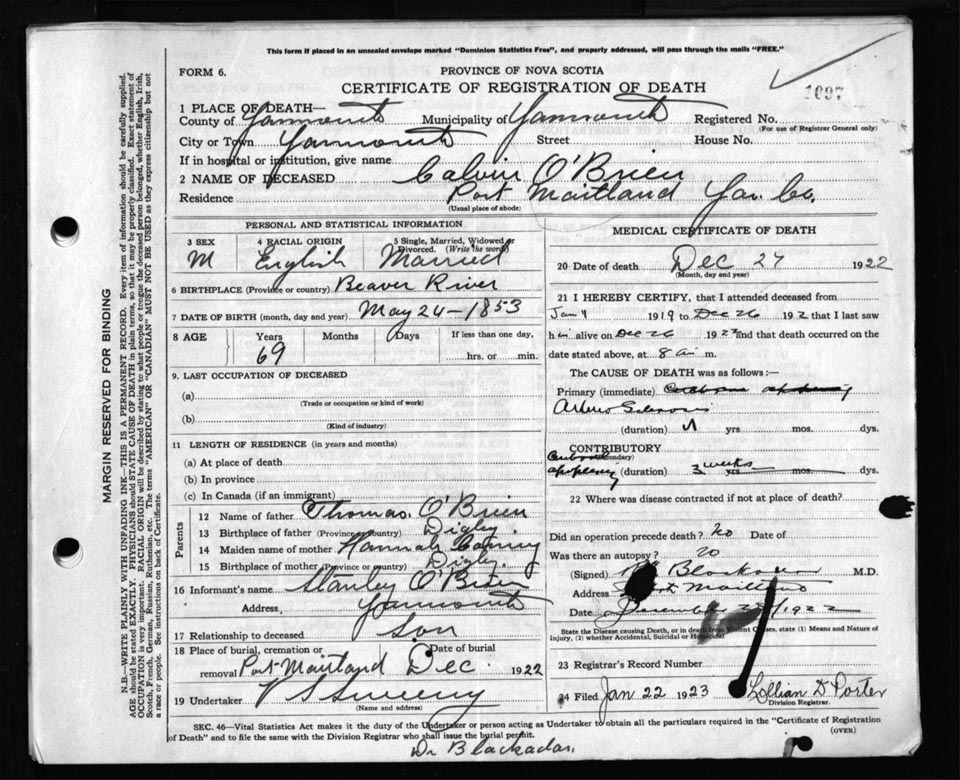 This form if placed in an unsealed envelope marked "Dominion Statistics Free", and properly addressed, will pass through the mails "FREE."
FORM 6.
PROVINCE OF NOVA SCOTIA
CERTIFICATE OF REGISTRATION OF DEATH
1097
1 PLACE OF DEATH—
County of Yarmouth Municipality of Yarmouth Registered No.
(For use of Registrar General only)
City or Town Yarmouth Street House No.
If in hospital or institution, give name
2 NAME OF DECEASED Calvin O'Brien
Residence Port Maitland Yar. Co.
(Usual place of abode)
PERSONAL AND STATISTICAL INFORMATION
3 SEX M
4 RACIAL ORIGIN English
5 Single, Married, Widowed or Divorced. (Write the word) Married
6 BIRTHPLACE (Province or country) Beaver River
7 DATE OF BIRTH (month, day and year) May 24 - 1853
8 AGE Years Months Days If less than one day,
69 hrs. or min.
9. LAST OCCUPATION OF DECEASED
(a)
(Trade or occupation or kind of work)
(b)
(Kind of industry)
11 LENGTH OF RESIDENCE (in years and months)
(a) At place of death
(b) In province
(c) In Canada (if an immigrant)
Parents
12 Name of father Thomas O'Brien
13 Birthplace of father (Province or country) Digby
14 Maiden name of mother Hannah
15 Birthplace of mother (Province or country) Digby.
16 Informant's name Stanley O'Brien
Address, Yarmouth
17 Relationship to deceased Son
18 Place of burial, cremation or removal Port Maitland
Date of burial Dec. 1922
19 Undertaker V S Sweeny
(Name and address)
MEDICAL CERTIFICATE OF DEATH
20 Date of death Dec 27 1922
(Month, day and year)
21 I HEREBY CERTIFY, that I attended deceased from
Jan 1919 to Dec 26 192 that I last saw
him alive on Dec 26 1922 and that death occurred on
date stated above, at 8 a. m.
The CAUSE OF DEATH was as follows:—
Primary (immediate)
Arterio Sclerosis
(duration) yrs mos. dys.
CONTRIBUTORY
(Secondary)
apoplexy (duration) 3 weeks yrs mos. dys.
22 Where was disease contracted if not at place of death?
Did an operation precede death? No Date of
Was there an autopsy? No
(Signed) Blackadar M.D.
Address Port Maitland
Date December 1922
State the Disease causing Death, or in death from Violent Causes, state (1) Means and Nature of Injury, (2) whether Accidental, Suicidal or Homicidal
23 Registrar's Record Number
24 Filed Jan 22 1923 Lillian D Porter
Division Registrar.
SEC. 46—Vital Statistics Act makes it the duty of the Undertaker or person acting as Undertaker to obtain all the particulars required in the "Certificate of Registration
of Death" and to file the same with the Division Registrar who shall issue the burial permit.
(OVER)
Dr Blackadar.
MARGIN RESERVED FOR BINDING
N.B—WRITE PLAINLY WITH UNFADING INK—THIS IS A PERMANENT RECORD. Every item of information should be carefully supplied.
AGE should be stated EXACTLY. PHYSICIANS should STATE CAUSE OF DEATH in plain terms, so that it may be properly classified. Exact statement of
OCCUPATION is very important. RACIAL ORIGIN will be described by stating to what people or tongue the deceased person belonged, whether English, Irish,
Scotch, French, German, Russian, Ruthenian, etc. The terms "AMERICAN" or "CANADIAN" MUST NOT BE USED as they express citizenship but not
a race or people. See instructions on back of Certificate.